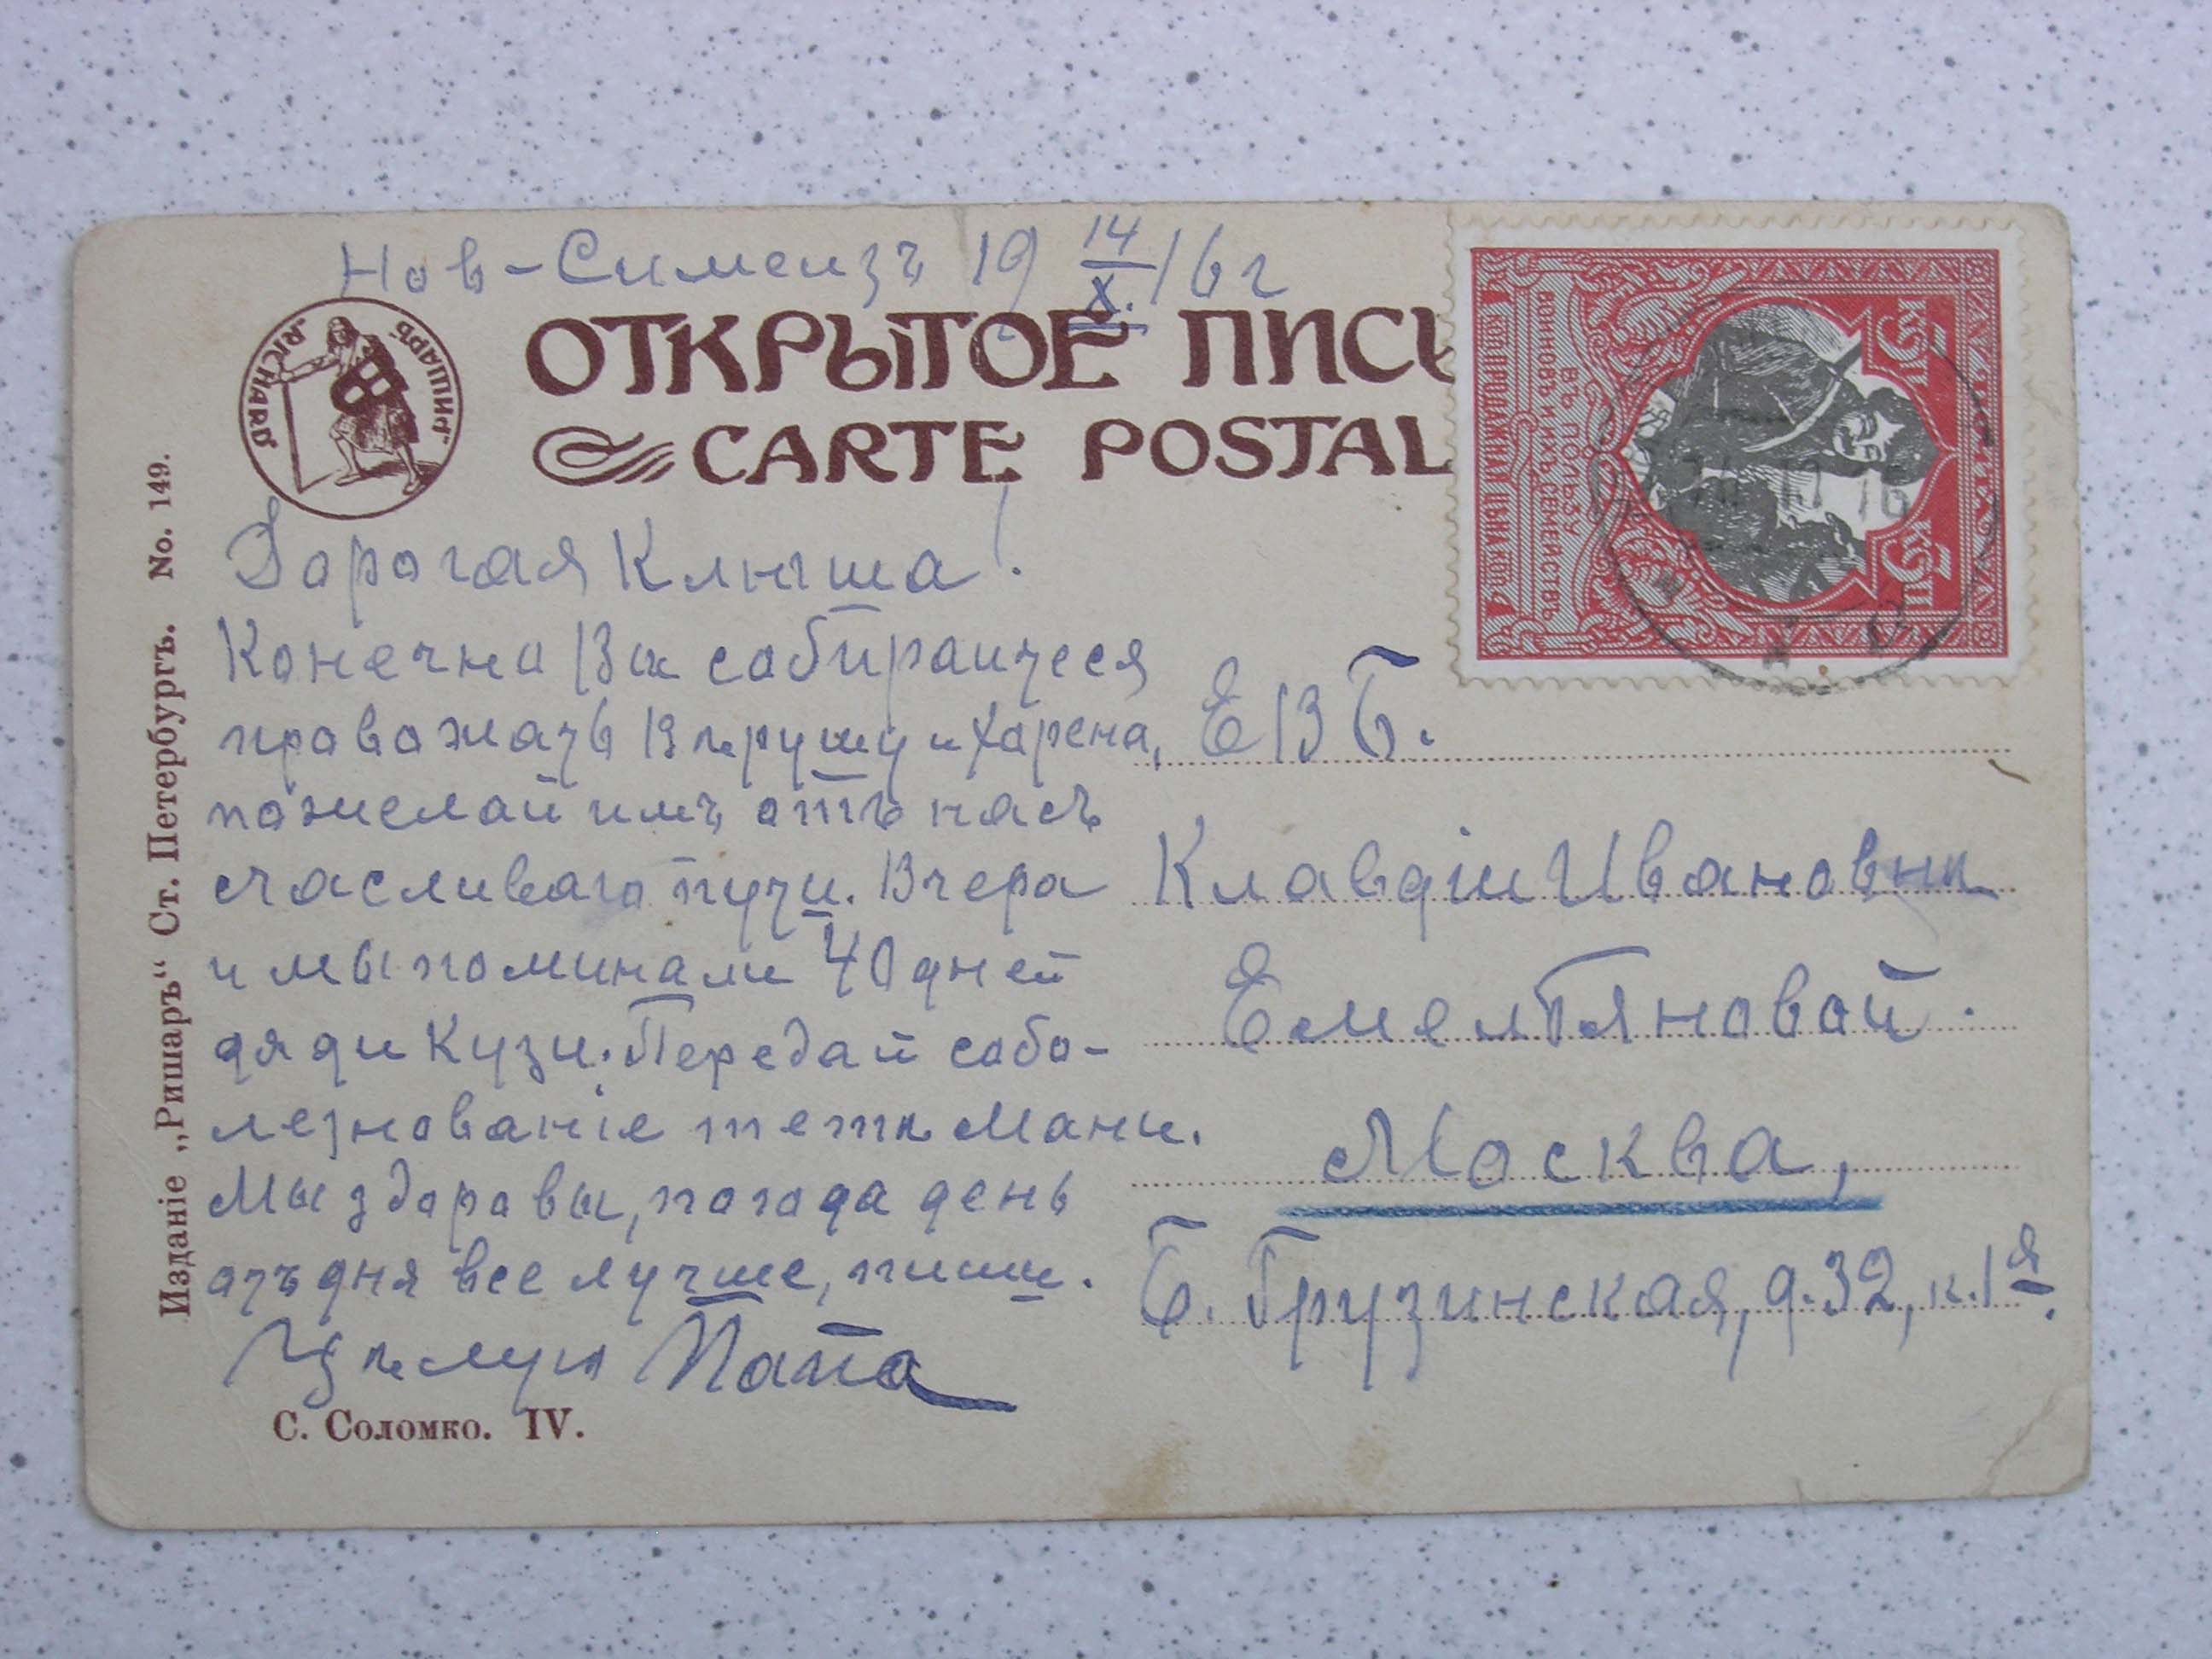 Нов-Симеизъ 19 14/X. 16 г
„RICHARD" „РИШАРЪ"
ОТКРЫТОЕ ПИСЬ
CARTE POSTAL
5 КОП 5 КОП
ВЪ ПОЛЬЗУ
ВОИНОВЪ И ИХЪ СЕМЕЙСТВЪ
Дорогая Клыша!
Конечно Вы собираитеся
провожать Вѣрушу и Харена,
пожелай имъ отъ насъ
счасливаго пути. Вчера
и мы поминали 40 дней
дяди Кузи. Передай собо-
лезнованіе тетѣ Мани.
Мы здоровы, погода день
отъ дня все лучше, пиши.
Цѣлую Папа
Е В Б.
Клавдіи Ивановнѣ
Емельяновой.
Москва,
Б. Грузинская, д. 32, к. 1я.
Изданіе „Ришаръ" Ст. Петербургъ. No. 149.
С. Соломко. IV.